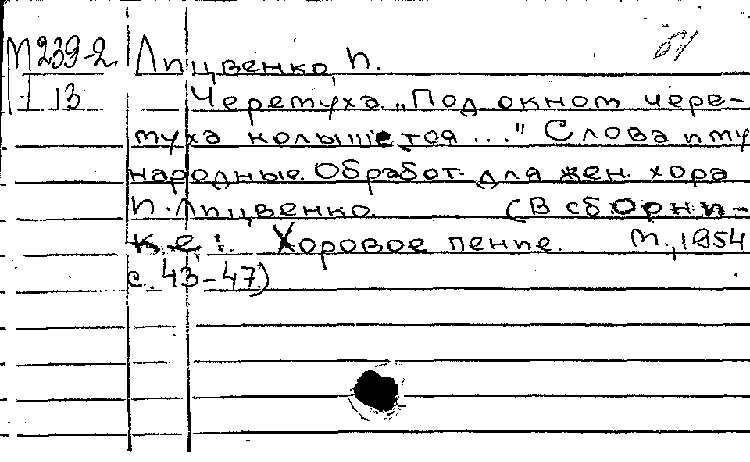 М239-2 Лицвенко, П.
I 13 Черемуха. „Под окном чере-
муха колышется ..." Слова и му
народные. Обработ. для жен. хора
П. Лицвенко. (В сборни-
ке: Хоровое пение. М., 1954
с. 43-47)